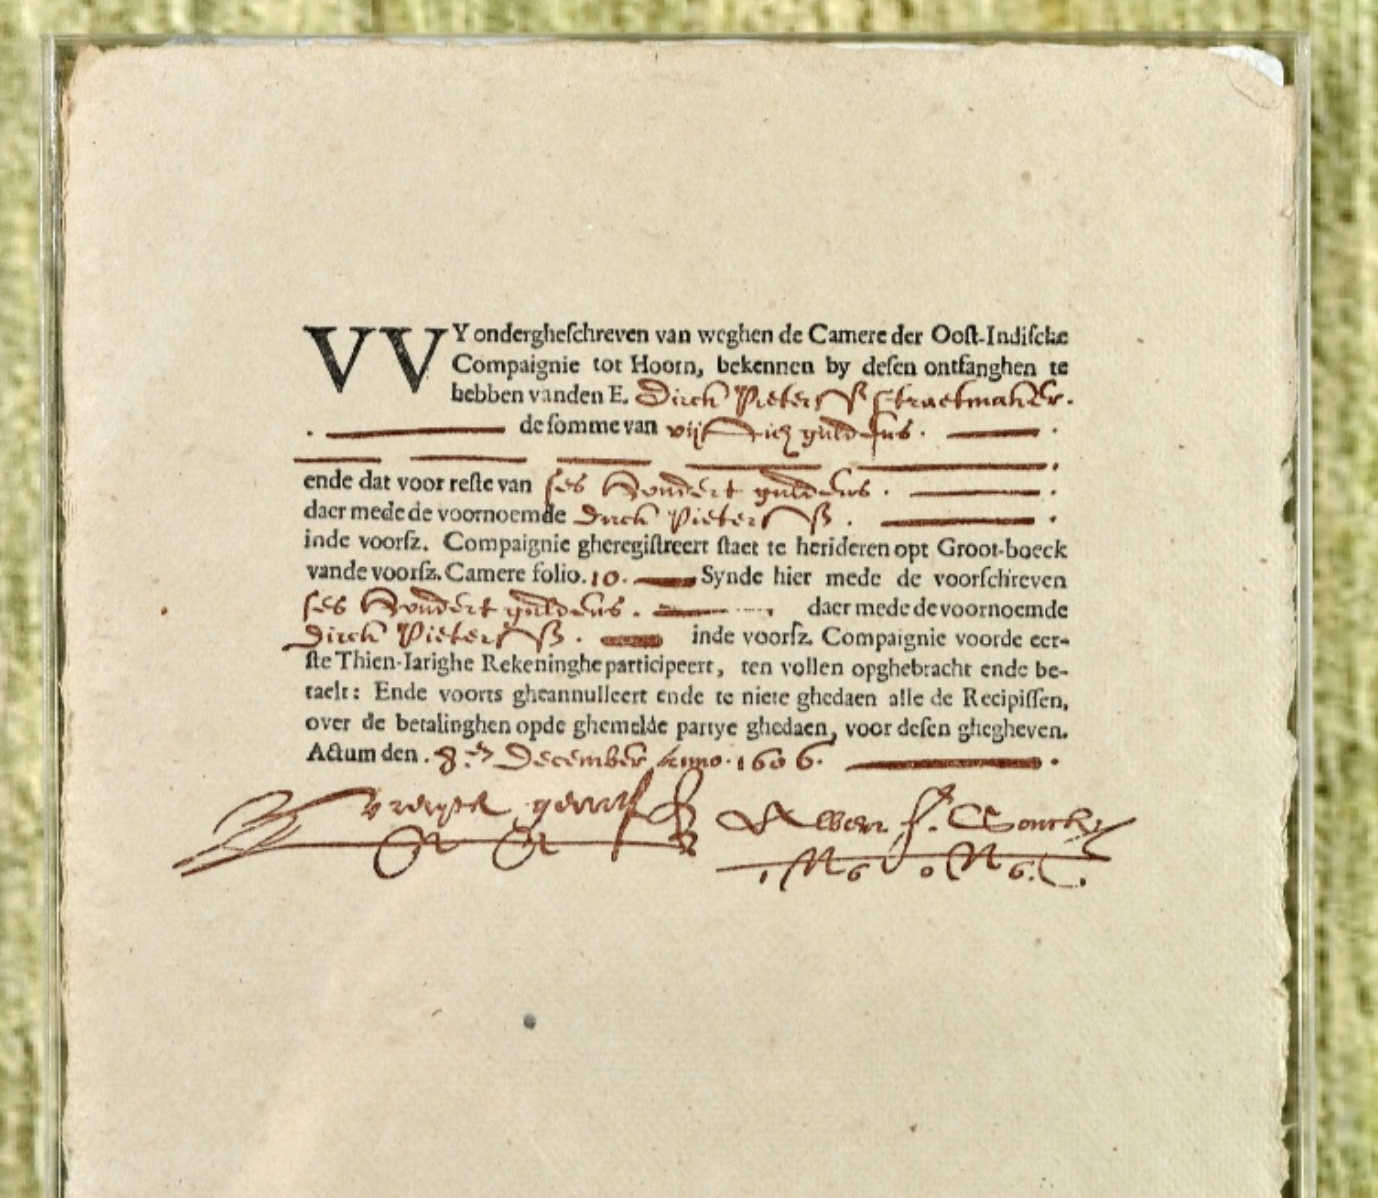 VVY ondergheſchreven van weghen de Camere der Ooſt-Indiſche
Compaignie tot Hoorn, bekennen by deſen ontfanghen te
hebben vanden E. Dirck Pietersſ Straetmaker.
de ſomme van vijftich guldens.
ende dat voor reſte van ſes hondert guldens.
daer mede de voornoemde Dirck Pietersſ.
inde voorſz. Compaignie gheregiſtreert ſtaet te herideren opt Groot-boeck
vande voorſz. Camere folio. 10. Synde hier mede de voorſchreven
ſes hondert guldens. daer mede de voornoemde
Dirck Pietersſ. inde voorſz. Compaignie voorde eer-
ſte Thien-Iarighe Rekeninghe participeert, ten vollen opghebracht ende be-
taelt: Ende voorts gheannulleert ende te niete ghedaen alle de Recipiſſen,
over de betalinghen opde ghemelde partye ghedaen, voor deſen ghegheven.
Actum den. 8. December Anno. 1606.